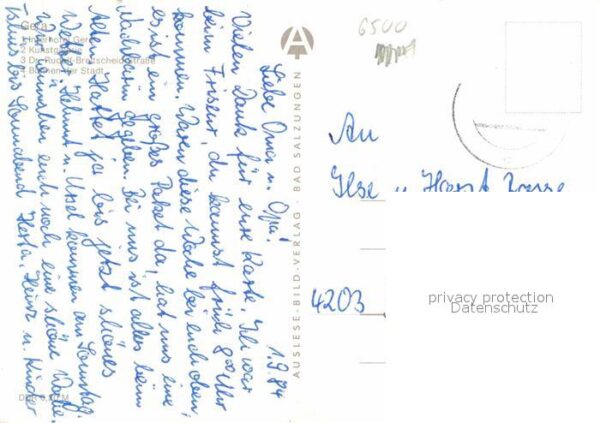 Gera
1 Interhotel Gera
2 Kunstgalerie
3 Dr.-Rudolf-Breitscheid-Straße
4 Bühnen der Stadt
1.9.84
Liebe Oma u. Opa!
Vielen Dank für eure Karte. Ich war
beim Friseur, du kannst früh 8 00 Uhr
kommen. Waren diese Woche bei euch oben,
es ist ein großes Paket da, hat uns eine
gegeben. Bei uns ist alles beim
Alten. Hattet ja bis jetzt schönes
Wetter. Helmut u. kommen am Sonntag.
Wir wünschen euch noch eine schöne Woche.
bis Sonnabend Herta, Heinz u. Kinder
DDR
AUSLESE-BILD-VERLAG · BAD SALZUNGEN
6500
An
Ilse u. Horst
4203
privacy protection
Datenschutz